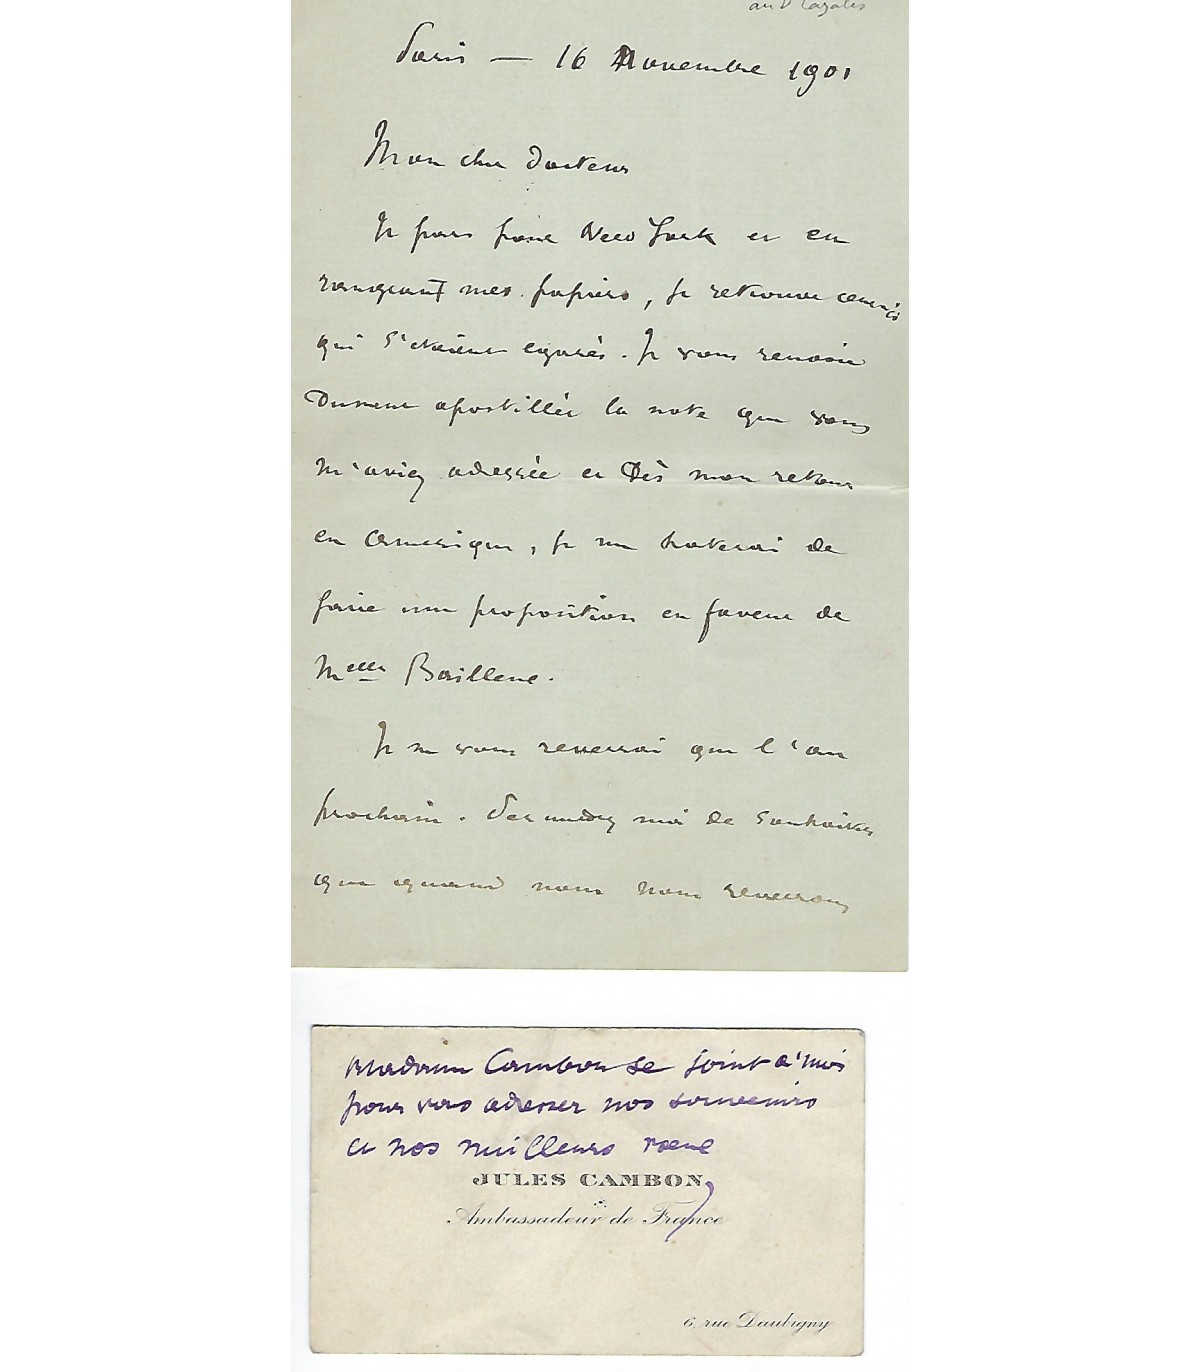 au Dr Cazalis
Paris — 16 Novembre 1901
Mon cher Docteur
Je pars pour New York et en
rangeant mes papiers, je retrouve ceux-ci
qui s'étaient égarés. Je vous renvoie
dument apostillée la note que vous
m'aviez adressée et dès mon retour
en Amérique, je me haterai de
faire une proposition en faveur de
Melle
Je ne vous reverrai que l'an
prochain. Permettez moi de souhaiter
que quand nous nous reverrons
Madame Cambon se joint à moi
pour vous adresser nos souvenirs
et nos meilleurs vœux
JULES CAMBON
Ambassadeur de France
6, rue Daubigny